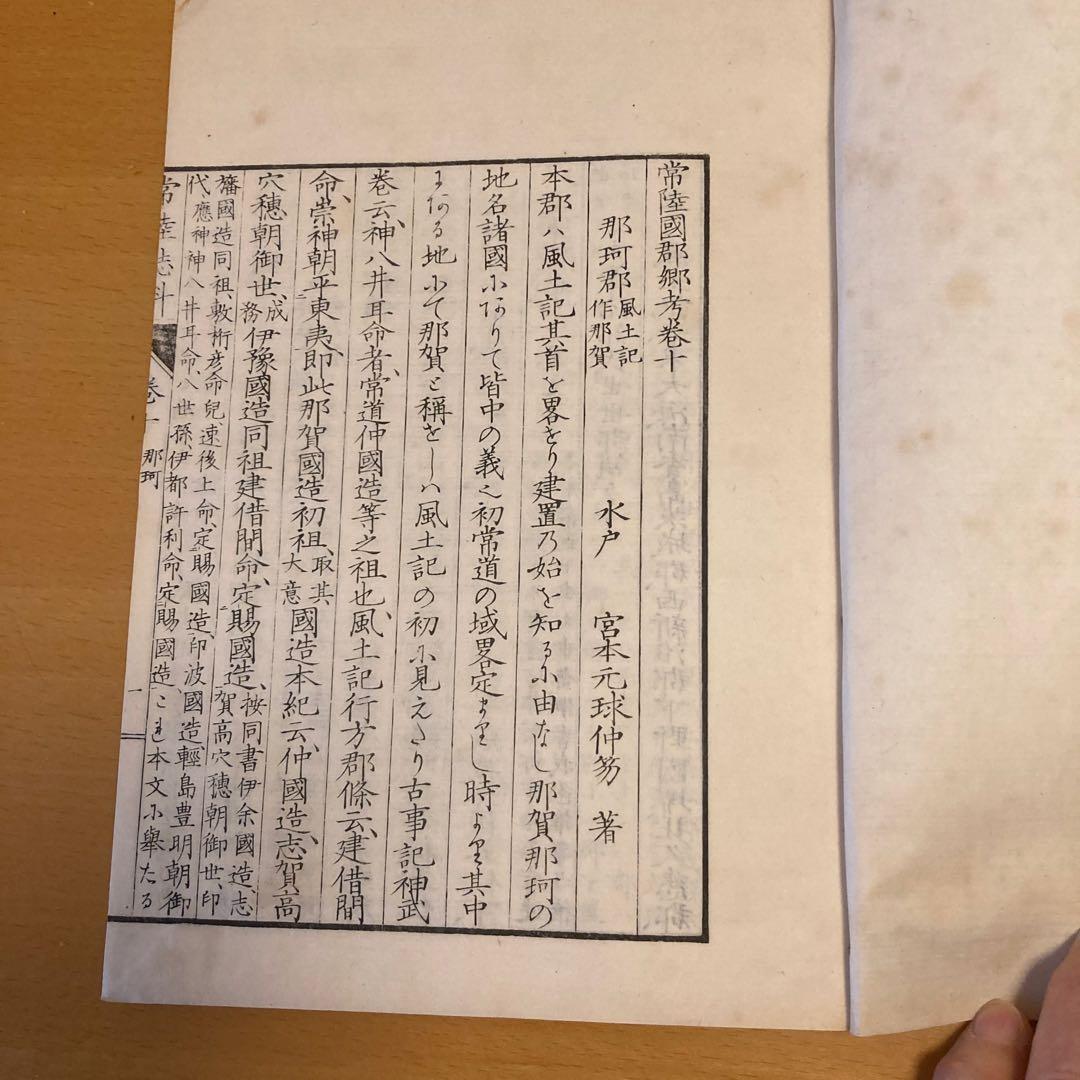 常陸國郡郷考卷十
水戸 宮本元球仲笏 著
那珂郡 風土記作那賀
本郡ハ風土記其首を畧せり建置乃始を知るに由なし那賀那珂の
地名諸國にありて皆中の義也初常道の域畧定まりし時より其中
にある地にて那賀と稱せしハ風土記の初に見えたり古事記神武
卷云、神八井耳命者、常道仲國造等之祖也、風土記行方郡條云、建借間
命、崇神朝平東夷、即此那賀國造初祖、取其大意 國造本紀云、仲國造、志賀高
穴穗朝御世、成務 伊豫國造同祖建借間命、定賜國造、按同書伊余國造、志賀高穴穗朝御世、印
旛國造同祖、敷桁彦命兒、速後上命、定賜國造、印波國造、輕島豊明朝御
代、應神神八井耳命、八世孫、伊都許利命、定賜國造、これ本文に舉たる
常陸志料 卷十 那珂 一